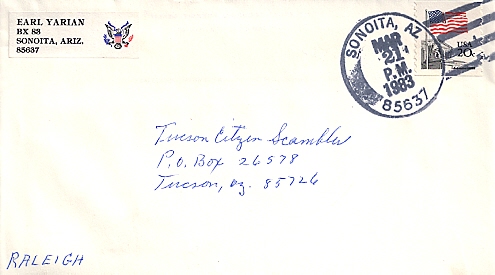 EARL YARIAN
BX 83
SONOITA, ARIZ.
85637
SONOITA, AZ
MAR
21
P.M.
1983
85637
USA
20c
Tucson Citizen Scambler
P.O. Box 26578
Tucson, az. 85726
RALEIGH